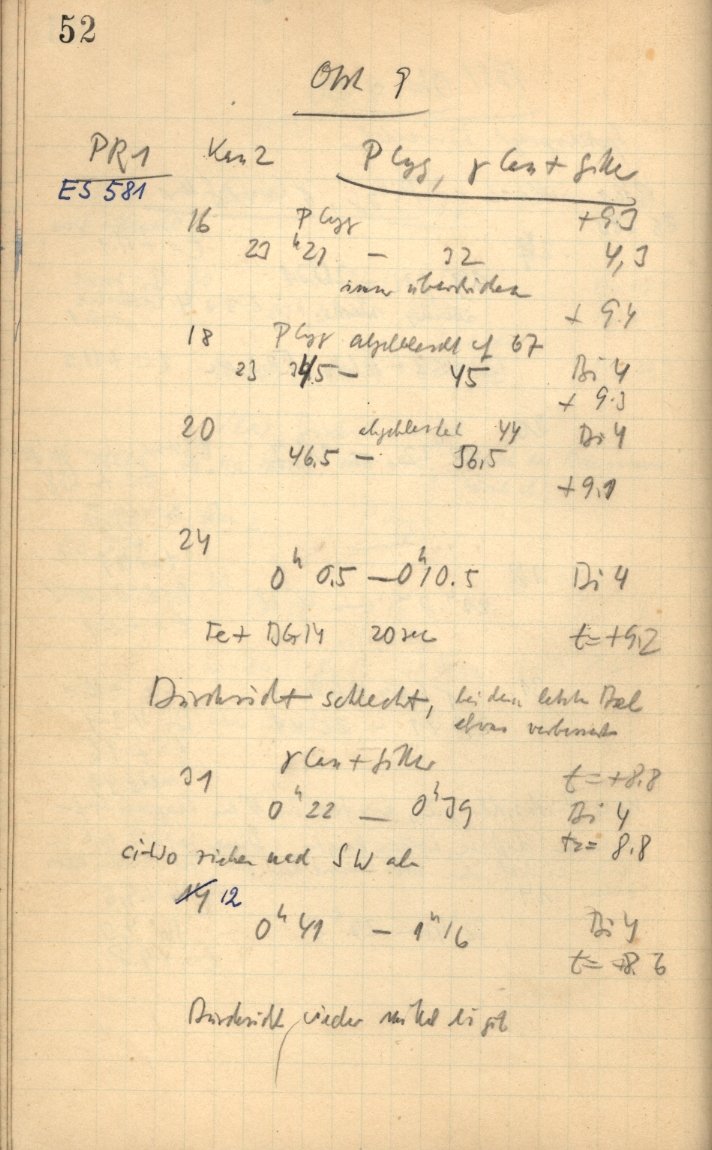 52
Obs 9
PR1 Kam 2 P Cyg, γ Cas + Gitter
ES 581
16 P Cyg +9.3
23 h 21 – 32 4,3
immer überstrichen
+ 9.4
18 P Cyg abgeblendet auf 67
23 35 – 45 Bi 4
+ 9.3
20 abgeblendet 44 Bi 4
46.5 – 56.5
+9.1
24
0 h 0.5 – 0 h 10.5 Bi 4
Fe + 20 sec t = +9.2
Durchsicht schlecht, bei den letzten
etwas verbessert
γ Cas + Gitter t = +8.8
31
0 h 22 – 0 h 39 Bi 4
ci-Wo ziehen nach SW ab t = 8.8
12
0 h 41 – 1 h 16 Bi 4
t = +8.6
Durchsicht wieder mittel bis gut